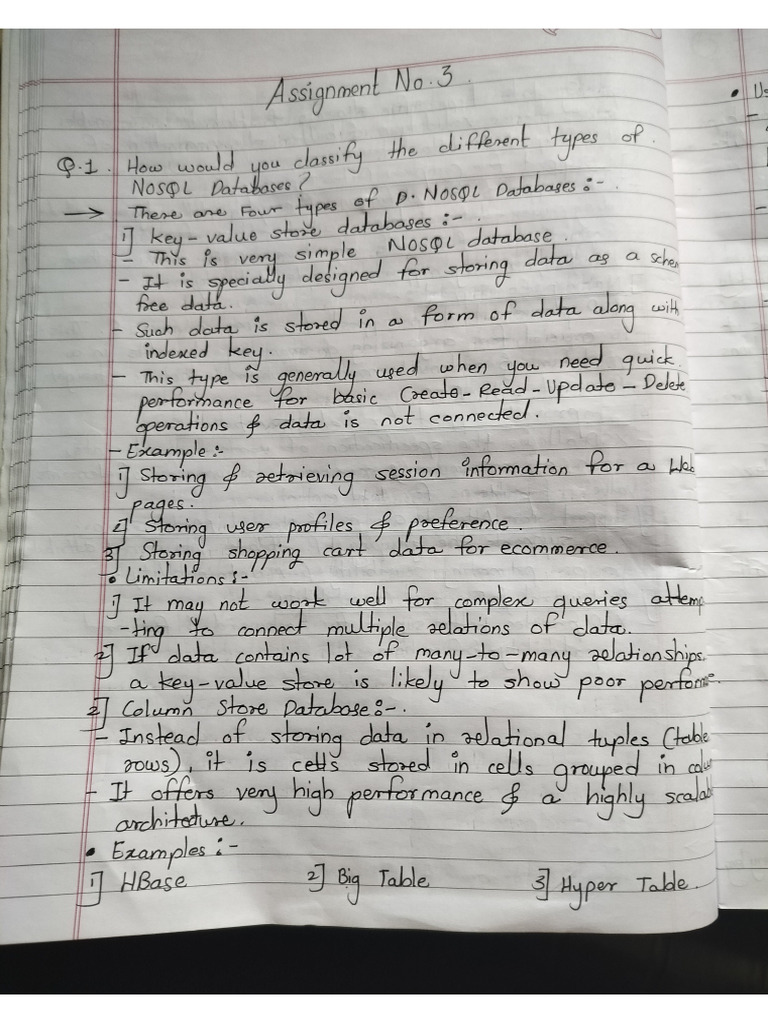 Assignment No. 3.
Q.1. How would you classify the different types of.
NOSQL Databases?
→ There are Four types of D. NOSQL Databases :-.
1] Key-value store databases :-.
- This is very simple NOSQL database.
- It is specially designed for storing data as a schem
free data.
- Such data is stored in a form of data along with
indexed key.
- This type is generally used when you need quick
performance for basic Create-Read-Update-Delete
operations & data is not connected.
- Example :-
1] Storing & retrieving session information for a Web
pages.
2] Storing user profiles & preference.
3] Storing shopping cart data for ecommerce.
• Limitations :-
1] It may not work well for complex queries attemp
-ting to connect multiple relations of data.
2] If data contains lot of many-to-many relationships.
a key-value store is likely to show poor performe.
2] Column Store Database :-.
- Instead of storing data in relational tuples (table
rows), it is cells stored in cells grouped in colu
- It offers very high performance & a highly scalab
architeture.
• Examples :-
1] HBase 2] Big Table 3] Hyper Table.
• Us